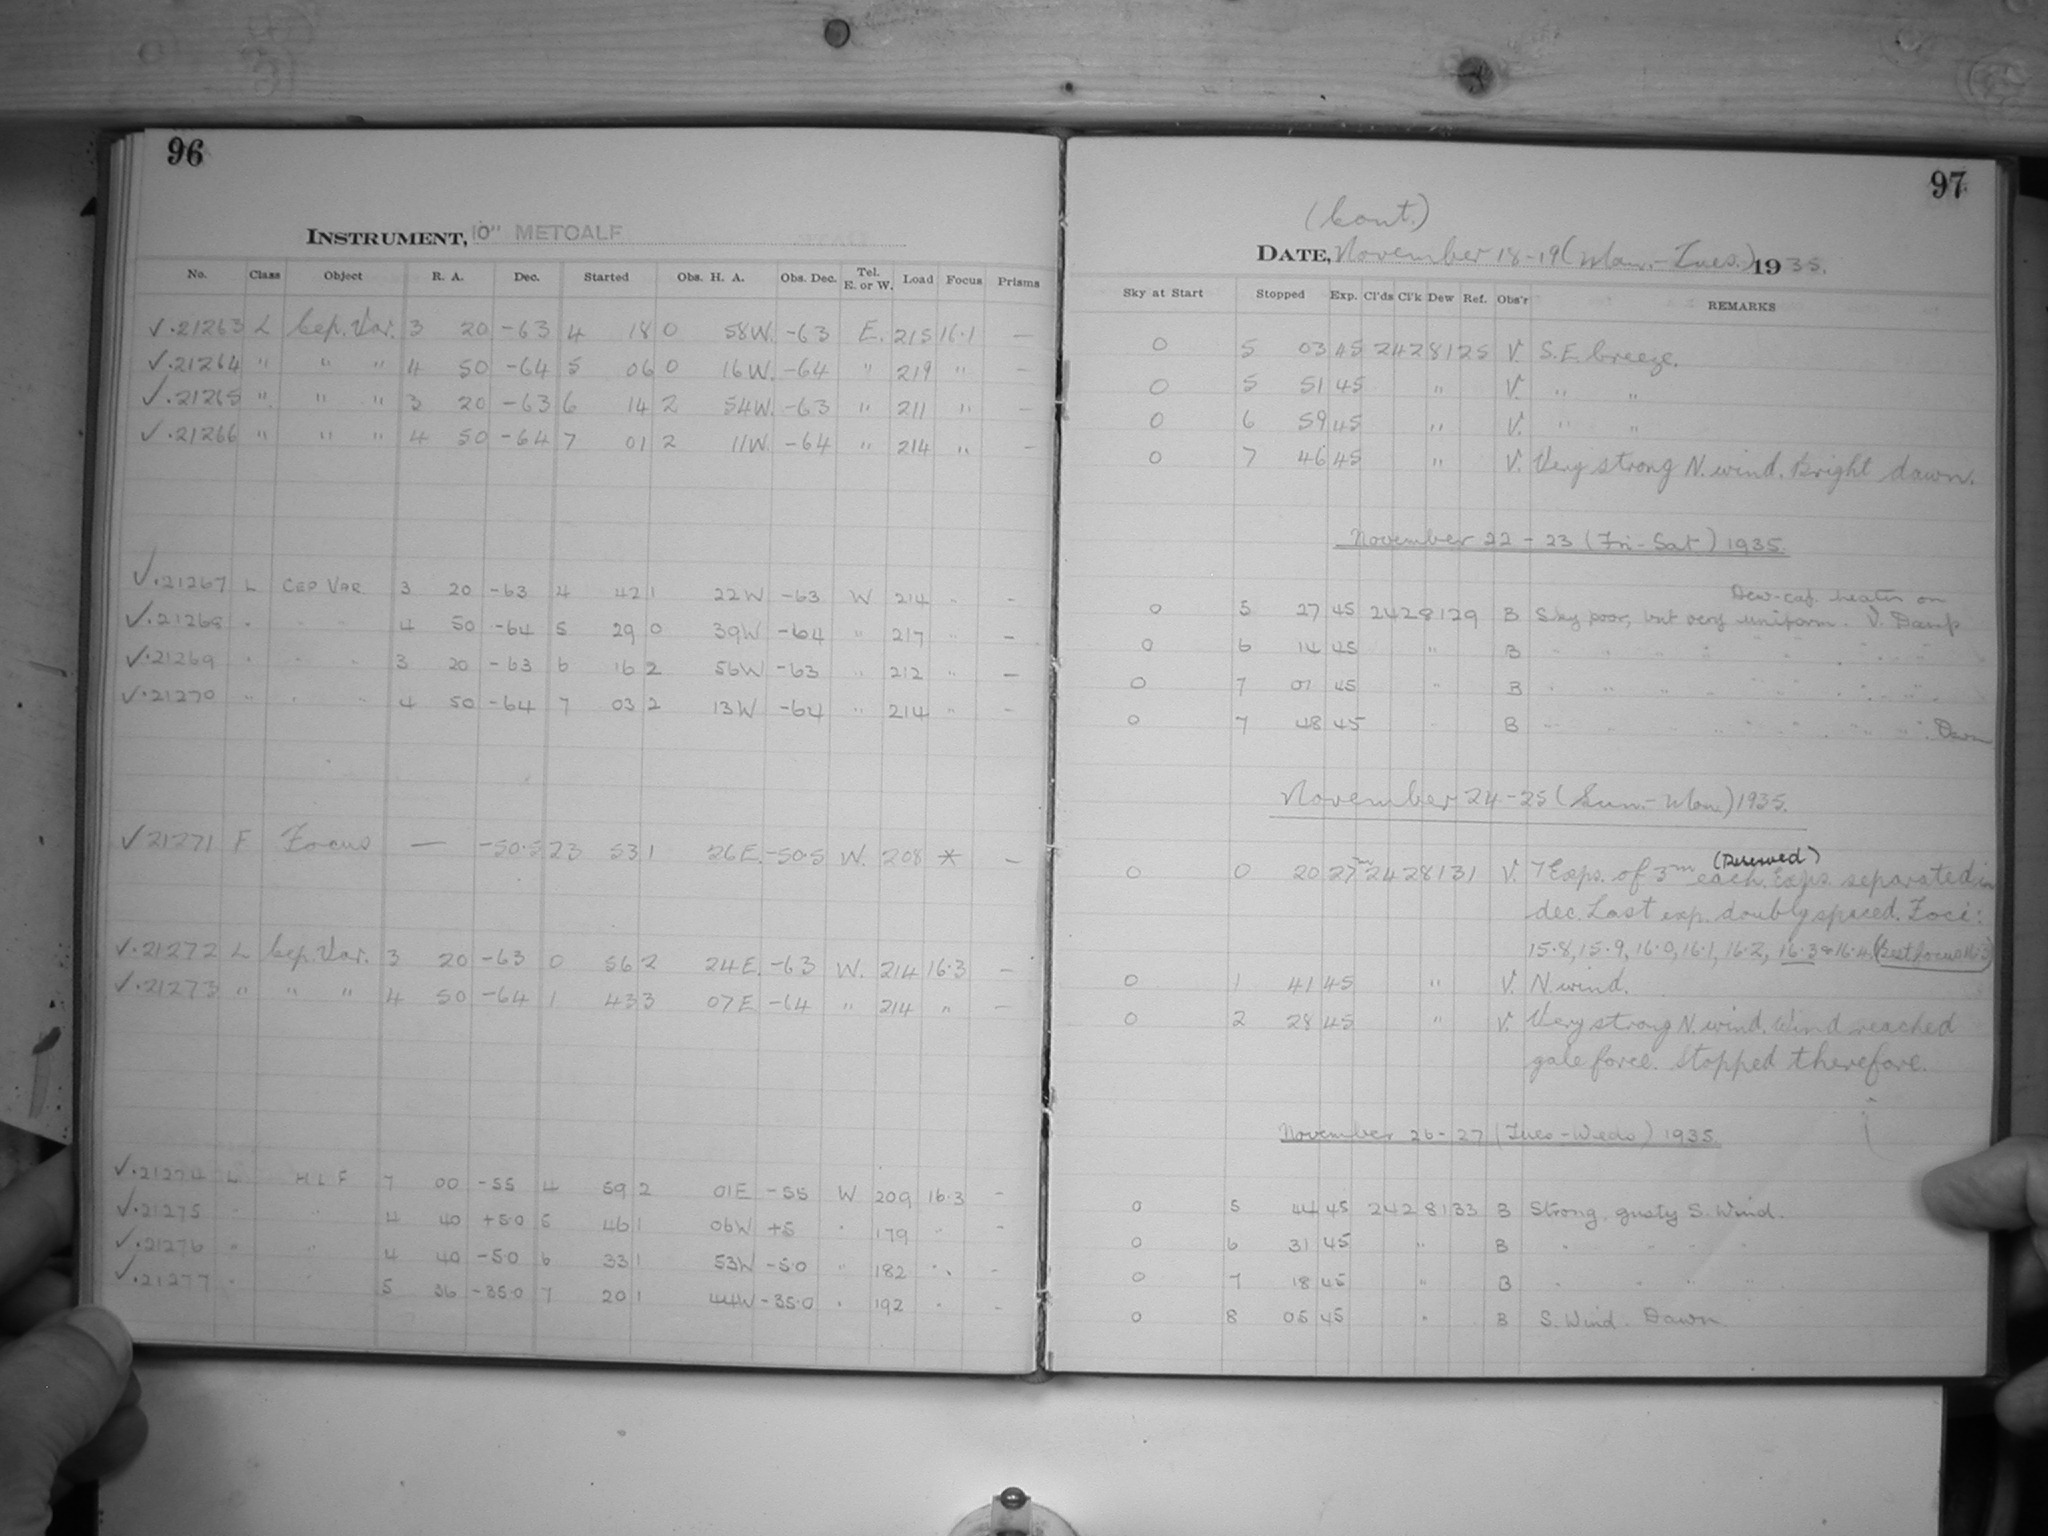 96
INSTRUMENT, 10" METCALF
No. Class Object R. A. Dec. Started Obs. H. A. Obs. Dec. Tel. E. or W. Load Focus Prisms
✓.21263 L Cep. Var. 3 20 -63 4 18 0 58W. -63 E. 215 16.1 —
✓.21264 " " " 4 50 -64 5 06 0 16W. -64 " 219 " —
✓.21265 " " " 3 20 -63 6 14 2 54W. -63 " 211 " —
✓.21266 " " " 4 50 -64 7 01 2 11W -64 " 214 " —
✓.21267 L CEP VAR 3 20 -63 4 42 1 22W -63 W 214 " —
✓.21268 " " " 4 50 -64 5 29 0 39W -64 " 217 " —
✓.21269 " " " 3 20 -63 6 16 2 56W -63 " 212 " —
✓.21270 " " " 4 50 -64 7 03 2 13W -64 " 214 " —
✓21271 F Focus — -50.5 23 53 1 26E. -50.5 W. 208 * —
✓.21272 L Cep. Var. 3 20 -63 0 56 2 24E. -63 W. 214 16.3 —
✓.21273 " " " 4 50 -64 1 43 3 07E -64 " 214 " —
✓.21274 L H L F 7 00 -55 4 59 2 01E -55 W 209 16.3 —
✓.21275 " " 4 40 +5.0 5 46 1 06W +5 " 179 " —
✓.21276 " " 4 40 -5.0 6 33 1 53W -5.0 " 182 " —
✓.21277 " " 5 36 -35.0 7 20 1 44W -35.0 " 192 " —
97
(Cont.)
DATE, November 18-19 (Mon.-Tues.) 1935.
Sky at Start Stopped Exp. Cl'ds Cl'k Dew Ref. Obs'r REMARKS
0 5 03 45 2428125 V. S.E. breeze.
0 5 51 45 " V. " "
0 6 59 45 " V. " "
0 7 46 45 " V. Very strong N. wind. Bright dawn.
November 22-23 (Fri-Sat) 1935.
Dew-cap heater on
0 5 27 45 2428129 B Sky poor, but very uniform. V. Damp
0 6 14 45 " B " " " " " " " "
0 7 01 45 " B " " " " " " " "
0 7 48 45 " B " " " " " " " " Dawn
November 24-25 (Sun.-Mon.) 1935.
(Reserved)
0 0 20 27m 2428131 V. 7 Exps. of 3m each. Exps. separated in
dec. Last exp. doubly spaced. Foci:
15.8, 15.9, 16.0, 16.1, 16.2, 16.3 & 16.4. (Best focus 16.3)
0 1 41 45 " V. N. wind.
0 2 28 45 " V. Very strong N. wind. Wind reached
gale force. Stopped therefore.
November 26-27 (Tues-Weds) 1935.
0 5 44 45 2428133 B Strong, gusty S. Wind.
0 6 31 45 " B " " " "
0 7 18 45 " B " " " "
0 8 05 45 " B S. Wind. Dawn